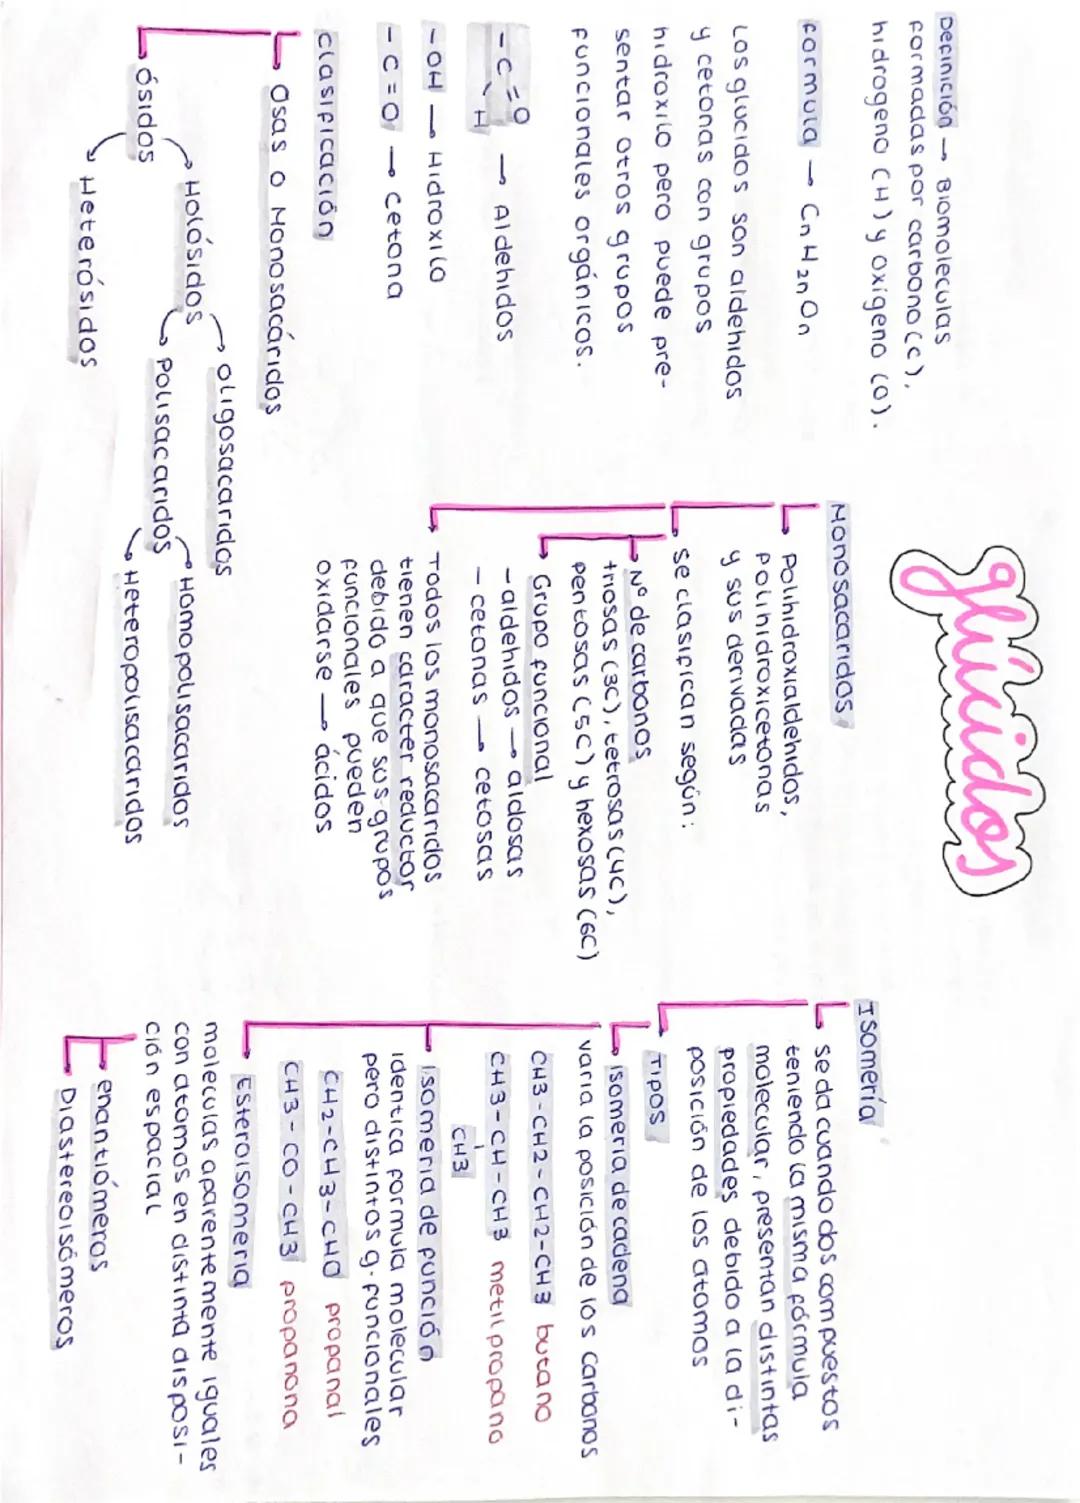 glúcidos
Definición → Biomoleculas
formadas por carbono (c),
hidrogeno (H) y oxígeno (O).
Formula → Cn H2n On
Los glucidos son aldehidos
y cetonas con grupos
hidroxilo pero puede pre-
sentar otros grupos
funcionales orgánicos.
-C=O
H → Aldehidos
-OH → Hidroxilo
-C=O → cetona
clasificación
Osas o Monosacáridos
Ósidos
Holósidos
oligosacaridos
Polisacaridos
Homopolisacaridos
Heteropolisacaridos
Heterósidos
Monosacaridos
Polihidroxialdehidos,
Polihidroxicetonas
y sus derivadas
se clasifican según:
Nº de carbonos
triosas (3C), tetrosas (4C),
pentosas (5C) y hexosas (6C)
Grupo funcional
-aldehidos → aldosas
-cetonas → cetosas
Todos los monosacaridos
tienen caracter reductor
debido a que sus grupos
funcionales pueden
oxidarse → ácidos
Isomería
se da cuando dos compuestos
teniendo la misma fórmula
molecular, presentan distintas
propiedades debido a la di-
posición de los atomos
Tipos
isomeria de cadena
varia la posición de los carbonos
CH3-CH2-CH2-CH3 butano
CH3-CH-CH3 metilpropano
CH3
isomeria de función
identica formula molecular
pero distintos g.funcionales
CH2-CH3-CHO propanal
CH3-CO-CH3 propanona
Esteroisomeria
moleculas aparentemente iguales
con atomos en distinta disposi-
ción espacial
enantiómeros
Diastereoisómeros